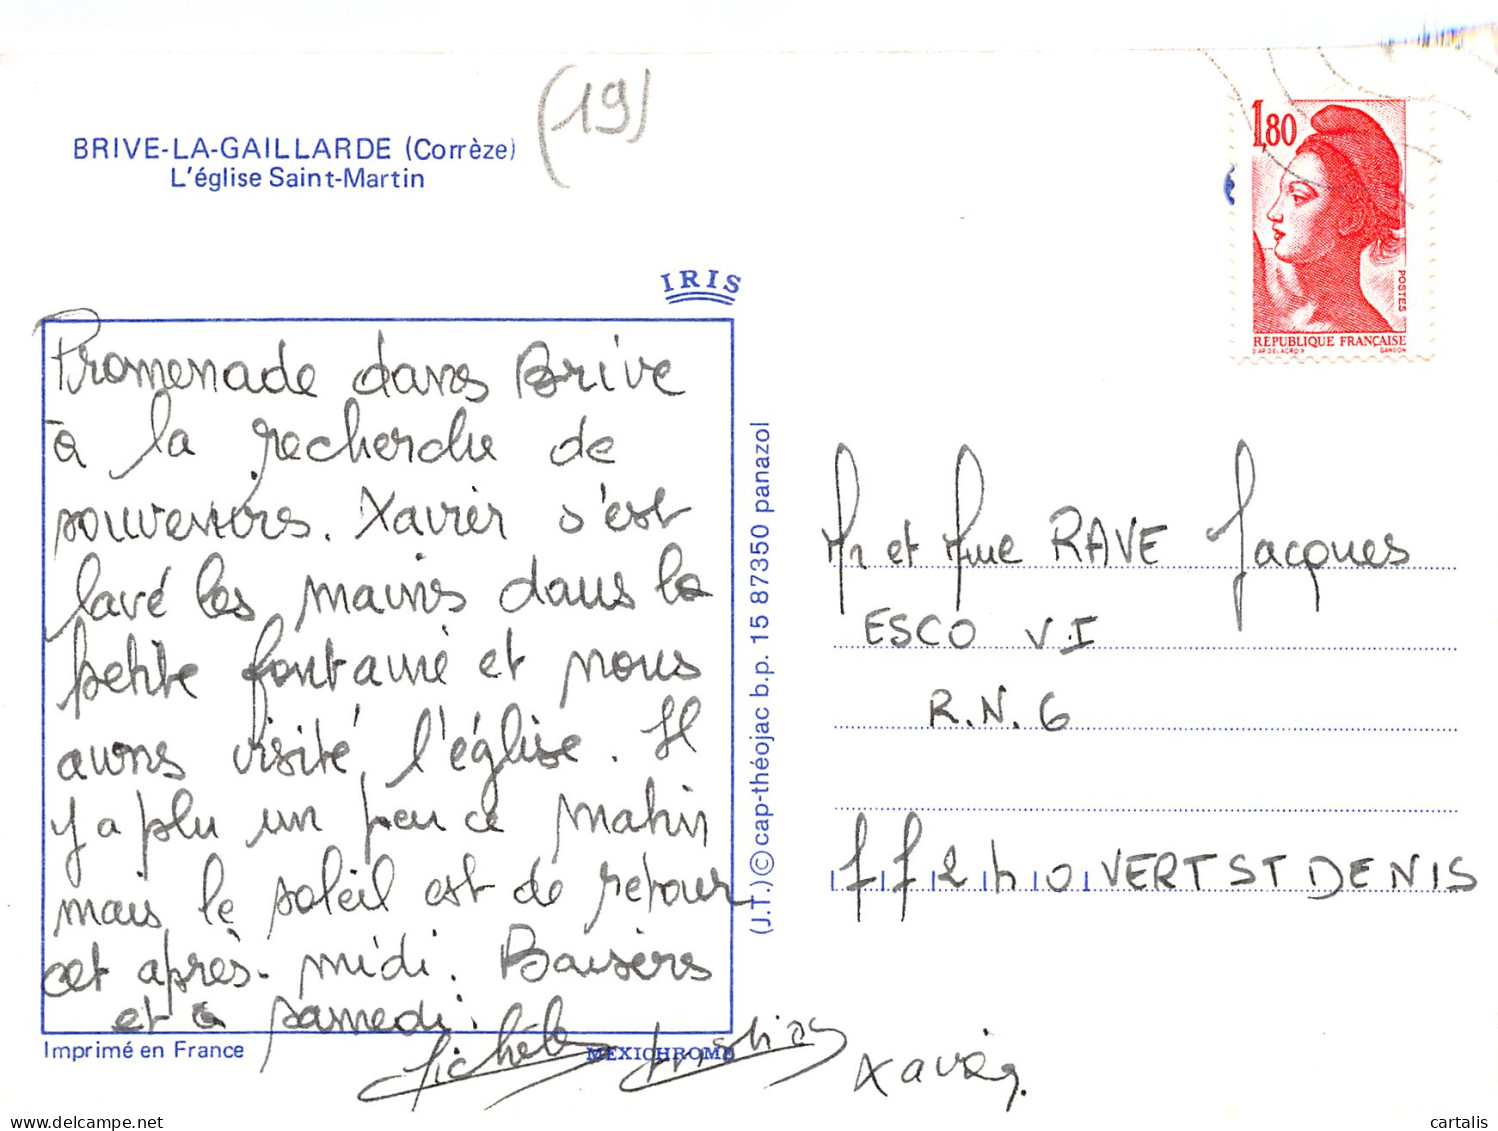 (19)
BRIVE-LA-GAILLARDE (Corrèze)
L'église Saint-Martin
1,80
POSTES
RÉPUBLIQUE FRANÇAISE
D'AP. DELACROIX GANDON
IRIS
Promenade dans Brive
à la recherche de
souvenirs. Xavier s'est
lavé les mains dans la
petite fontaine et nous
avons visité l'église. Il
y a plu un peu ce matin
mais le soleil est de retour
cet après-midi. Baisers
et à samedi.
Michèle
Xavier.
Imprimé en France
MEXICHROME
(J.T.) © cap-théojac b.p. 15 87350 panazol
Mr et Mme RAVE Jacques
ESCO V.I
R.N. 6
VERT ST DENIS
cartalis